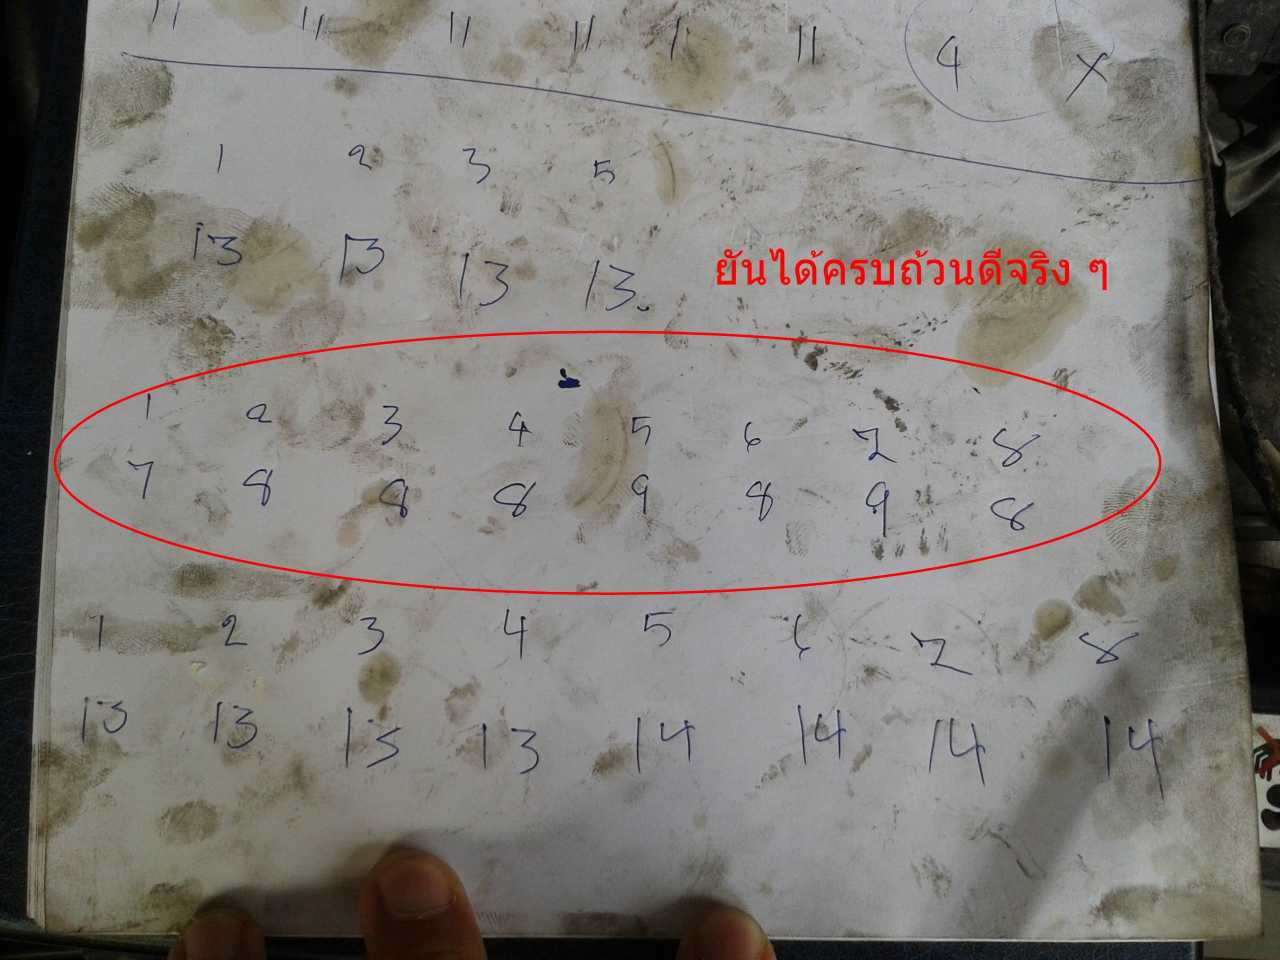 11 11 11 11 11 11 4 X
1 2 3 5
13 13 13 13.
ยันได้ครบถ้วนดีจริง ๆ
1 2 3 4 5 6 7 8
7 8 8 8 9 8 9 8
1 2 3 4 5 6 7 8
13 13 13 13 14 14 14 14